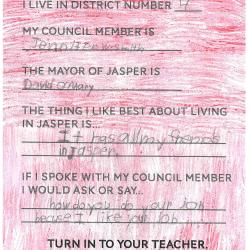 I LIVE IN DISTRICT NUMBER 4
MY COUNCIL MEMBER IS
Jennifer smith
THE MAYOR OF JASPER IS
David O'Mary
THE THING I LIKE BEST ABOUT LIVING
IN JASPER IS...
It has all my friends
in jasper.
IF I SPOKE WITH MY COUNCIL MEMBER
I WOULD ASK OR SAY...
how do you do your Job
becase I like your Job
TURN IN TO YOUR TEACHER.